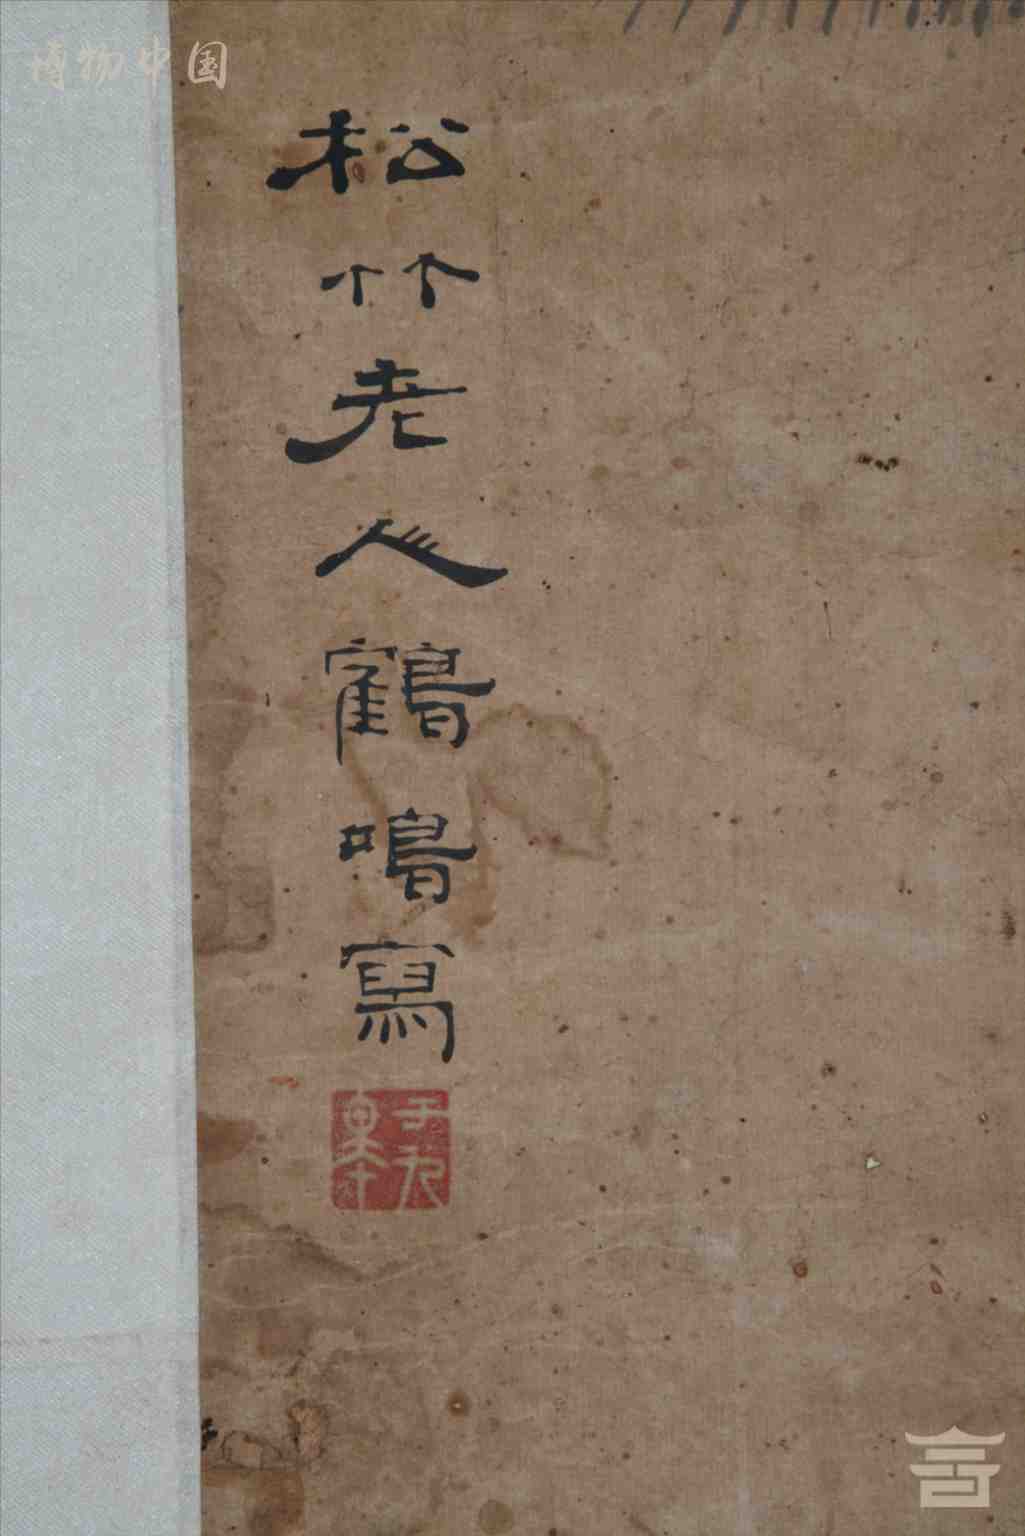 博物中国
松竹老人鶴鳴寫